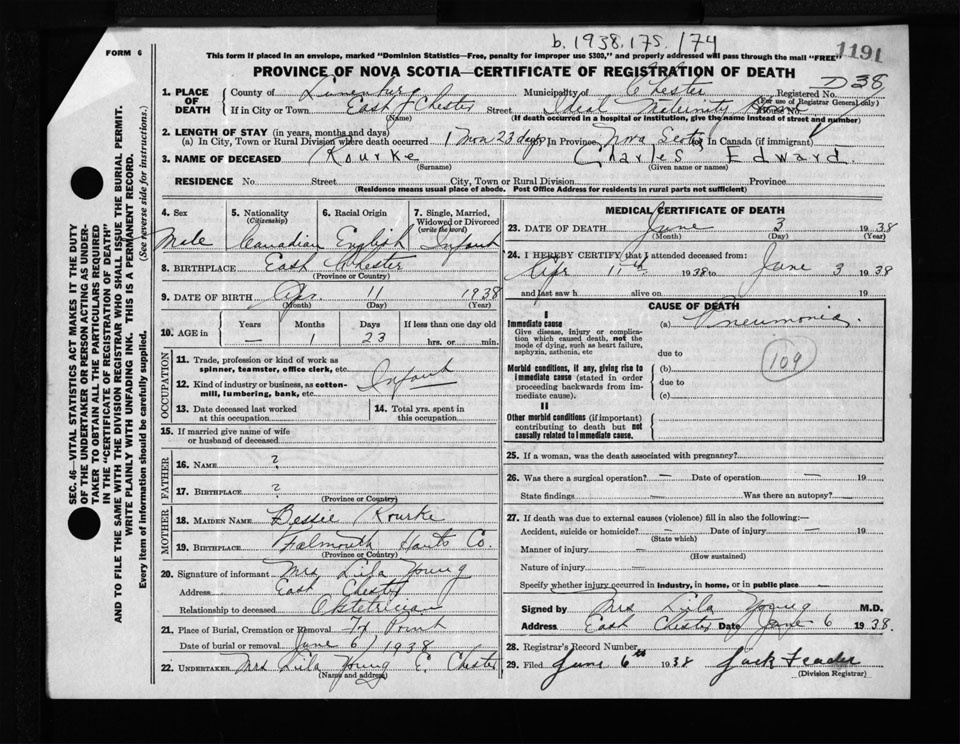 b. 1938. 175. 174
1191
FORM 6
This form if placed in an envelope, marked "Dominion Statistics—Free, penalty for improper use $300," and properly addressed will pass through the mail "FREE"
PROVINCE OF NOVA SCOTIA—CERTIFICATE OF REGISTRATION OF DEATH
D 38
1. PLACE OF DEATH County of Lunenburg Municipality of Chester Registered No.
(For use of Registrar General only)
If in City or Town East Chester Street Ideal Maternity Home House No.
(Name) (If death occurred in a hospital or institution, give the name instead of street and number)
2. LENGTH OF STAY (in years, months and days)
(a) In City, Town or Rural Division where death occurred 1 Mon 23 days (b) In Province Nova Scotia (c) In Canada (if immigrant)
3. NAME OF DECEASED Rourke Charles Edward.
(Surname) (Given name or names)
RESIDENCE No. Street City, Town or Rural Division Province
(Residence means usual place of abode. Post Office Address for residents in rural parts not sufficient)
4. Sex 5. Nationality (Citizenship) 6. Racial Origin 7. Single, Married, Widowed or Divorced (write the word)
Male Canadian English Infant
8. BIRTHPLACE East Chester
(Province or Country)
9. DATE OF BIRTH Apr. 11 1938
(Month) (Day) (Year)
10. AGE in Years Months Days If less than one day old
— 1 23 hrs. or min.
OCCUPATION
11. Trade, profession or kind of work as spinner, teamster, office clerk, etc.
Infant
12. Kind of industry or business, as cotton-mill, lumbering, bank, etc.
13. Date deceased last worked at this occupation
14. Total yrs. spent in this occupation
15. If married give name of wife or husband of deceased
FATHER
16. Name ?
17. Birthplace ?
(Province or Country)
MOTHER
18. Maiden Name Bessie Rourke
19. Birthplace Falmouth Hants Co.
(Province or Country)
20. Signature of informant Mrs Lila Young
Address East Chester
Relationship to deceased Obstetrician
21. Place of Burial, Cremation or Removal Fx Point
Date of burial or removal June 6, 1938
22. Undertaker Mrs Lila Young E. Chester
(Name and address)
MEDICAL CERTIFICATE OF DEATH
23. DATE OF DEATH June 3 1938
(Month) (Day) (Year)
24. I HEREBY CERTIFY that I attended deceased from:
Apr 11th 1938 to June 3 1938
and last saw h alive on 19
CAUSE OF DEATH
I
Immediate cause (a) Pneumonia.
Give disease, injury or complication which caused death, not the mode of dying, such as heart failure, asphyxia, asthenia, etc
due to
109
Morbid conditions, if any, giving rise to immediate cause (stated in order proceeding backwards from immediate cause).
(b)
due to
(c)
II
Other morbid conditions (if important) contributing to death but not causally related to immediate cause.
25. If a woman, was the death associated with pregnancy?
26. Was there a surgical operation? — Date of operation — 19
State findings — Was there an autopsy?
27. If death was due to external causes (violence) fill in also the following:—
Accident, suicide or homicide? — Date of injury — 19
(State which)
Manner of injury —
(How sustained)
Nature of injury —
Specify whether injury occurred in industry, in home, or in public place —
Signed by Mrs Lila Young M.D.
Address East Chester Date June 6 1938.
28. Registrar's Record Number
29. Filed June 6th 1938 Jack Feader
(Division Registrar)
SEC. 46—VITAL STATISTICS ACT MAKES IT THE DUTY
OF THE UNDERTAKER OR PERSON ACTING AS UNDER-
TAKER TO OBTAIN ALL THE PARTICULARS REQUIRED
IN THE "CERTIFICATE OF REGISTRATION OF DEATH"
AND TO FILE THE SAME WITH THE DIVISION REGISTRAR WHO SHALL ISSUE THE BURIAL PERMIT.
WRITE PLAINLY WITH UNFADING INK. THIS IS A PERMANENT RECORD.
Every item of information should be carefully supplied. (See reverse side for instructions.)